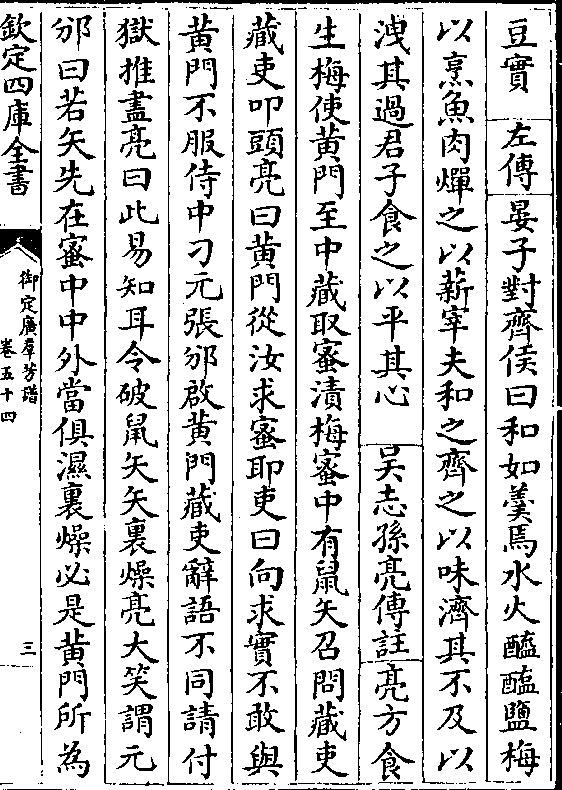 豆實　左傳晏子對齊侯曰和如羮焉水火醯醢鹽梅
以烹魚肉燀之以薪宰夫和之齊之以味濟其不及以
洩其過君子食之以平其心　吳志孫亮傳註亮方食
生梅使黄門至中藏取蜜漬梅蜜中有鼠矢召問藏吏
藏吏叩頭亮曰黄門從汝求蜜耶吏曰向求實不敢與
黄門不服侍中刁元張邠啟黄門藏吏辭語不同請付
獄推盡亮曰此易知耳令破鼠矢矢裏燥亮大笑謂元
邠曰若矢先在蜜中中外當俱濕裏燥必是黄門所為
欽定四庫全書
御定廣羣芳譜
卷五十四
三